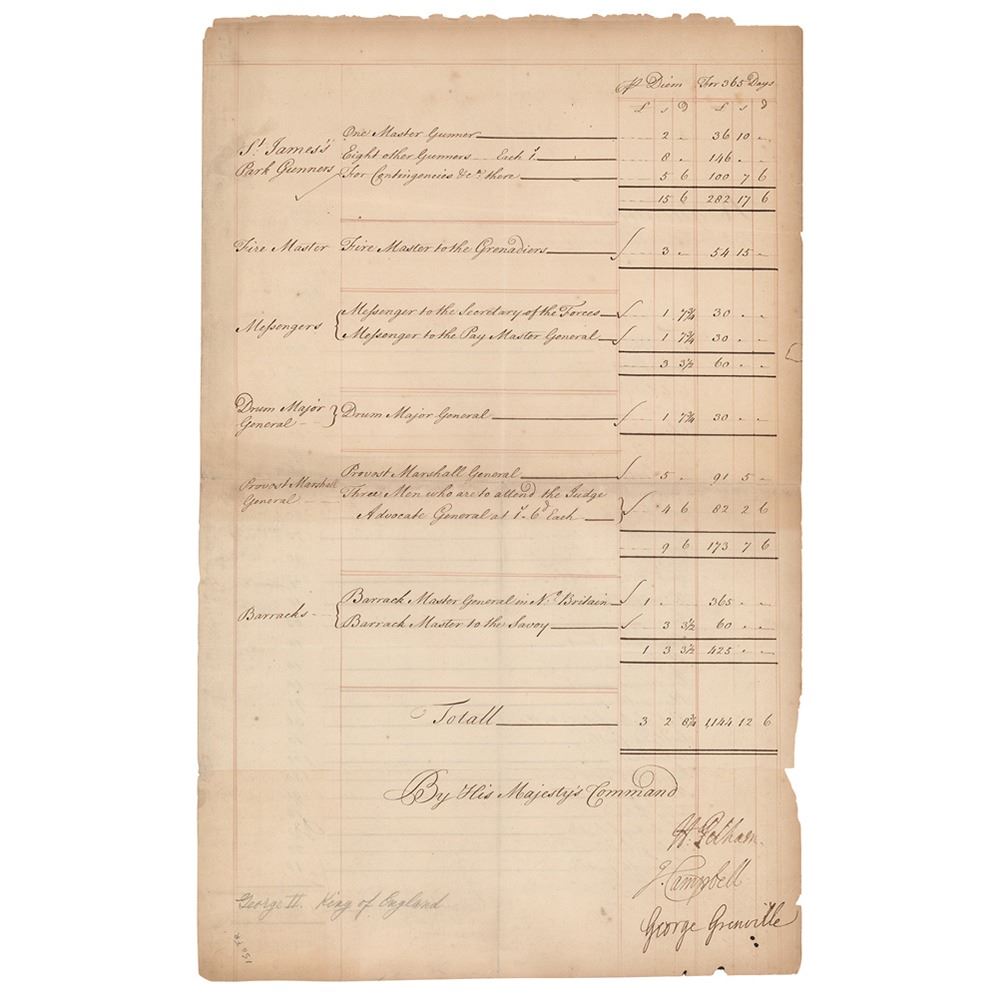 ⅌ Diem For 365 Days
£ s D £ s d
St. James's
Park Gunners
One Master Gunner 2 - 36 10 -
Eight other Gunners Each 1s. 8 - 146 - -
For Contingencies &ca. there 5 6 100 7 6
15 6 282 17 6
Fire Master Fire Master to the Grenadiers 3 - 54 15 -
Messengers
Messenger to the Secretary of the Forces 1 7¾ 30 - -
Messenger to the Pay Master General 1 7¾ 30 - -
3 3½ 60 - -
Drum Major
General
Drum Major General 1 7¾ 30 - -
Provost Marshall
General
Provost Marshall General 5 - 91 5 -
Three Men who are to attend the Judge
Advocate General at 1s. 6d Each 4 6 82 2 6
9 6 173 7 6
Barracks
Barrack Master General in No. Britain 1 - - 365 - -
Barrack Master to the Savoy 3 3½ 60 - -
1 3 3½ 425 - -
Totall 3 2 8¾ 1,144 12 6
By His Majesty's Command
H. Pelham.
J. Campbell
George Grenville
George II. King of England